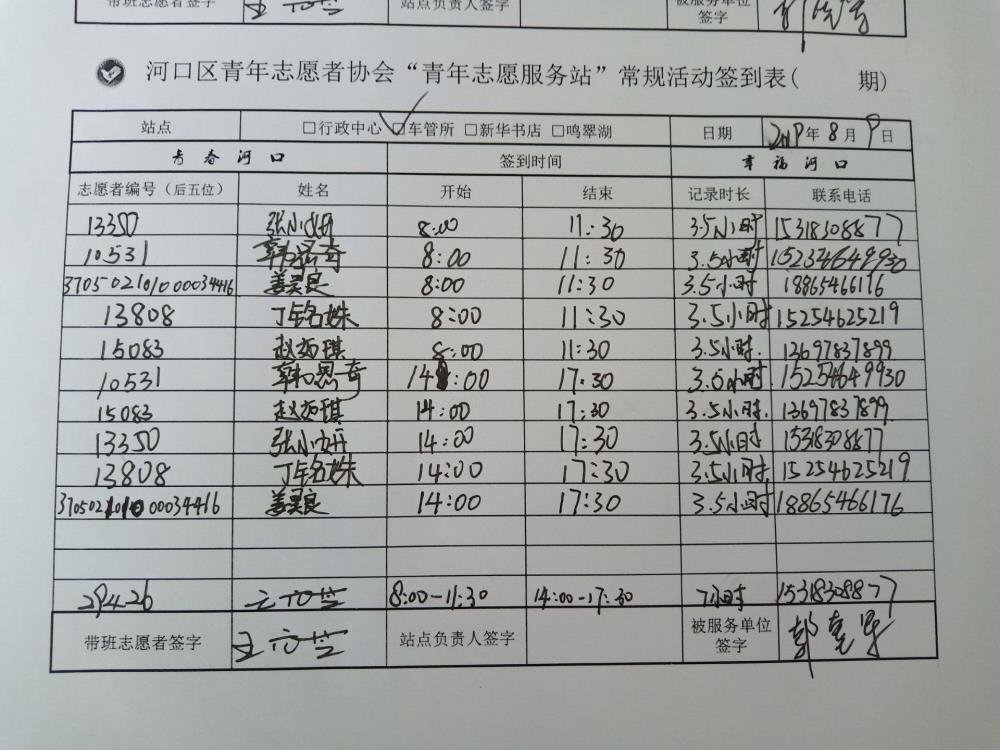 带班志愿者签字 站点负责人签字 被服务单位签字
河口区青年志愿者协会“青年志愿服务站”常规活动签到表( 期)
站点 □行政中心 □车管所 □新华书店 □鸣翠湖 日期 2019年8月9日
青春河口 签到时间 幸福河口
志愿者编号（后五位） 姓名 开始 结束 记录时长 联系电话
13350 张小妍 8:00 11:30 3.5小时 15318308877
10531 韩思奇 8:00 11:30 3.5小时
37050210100034416 姜昊良 8:00 11:30 3.5小时 18865466176
13808 丁铭姝 8:00 11:30 3.5小时 15254625219
15083 赵祐琪 8:00 11:30 3.5小时. 13697837899
10531 韩思奇 14:00 17:30 3.5小时 15254649930
15083 赵祐琪 14:00 17:30 3.5小时. 13697837899
13350 张小妍 14:00 17:30 3.5小时 15318308877
13808 丁铭姝 14:00 17:30 3.5小时. 15254625219
37050210100034416 姜昊良 14:00 17:30 3.5小时 18865466176
29426 8:00-11:30 14:00-17:30 7小时 15318308877
带班志愿者签字 站点负责人签字 被服务单位签字